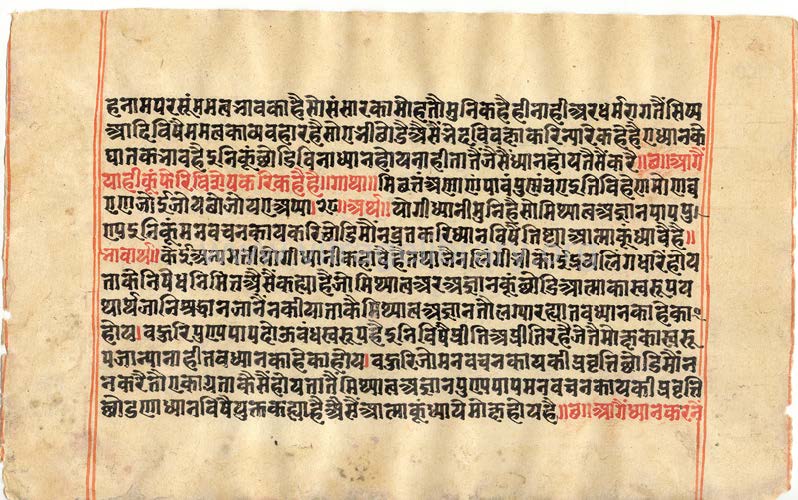 हनामपरसूंममत्वभावकाहैसोसंसारकामोहतौमुनिकैहैहीनाहीअरधर्मरागतैंसिष्य
आदिविषैममत्वकाव्यवहारहैसोएभीछोडैअैसैंभेदविवक्षाकरिन्यारेकहेहैएध्यानकै
घातकभावहैइनिकूंछोडिविनाध्यानहोयनाहीतातैंजैसैंध्यानहोयतैसैंकरै॥छ॥आगैं
याहीकूंफेरिविशेषकरिकहैहै॥गाथा॥मिछत्तंअणाणंपावंपुण्णंचएइतिविहेणमोणव्व
एणजोईजोयछोजोयएअप्पा।२८।अर्थ॥योगीध्यानीमुनिहैसोमिथ्यात्वअज्ञानपापपु
ण्यइनिकूंमनवचनकायकरिछोडिमौनव्रतकरिध्यानविषैतिष्ठ्याआत्माकूंध्यावैहै॥
भावार्थ॥केईअन्यमतीयोगीध्यानीकहावैहैतथाजैनलिंगीभीकोईद्रव्यलिंगधारेहोय
ताकेनिषेधनिमित्तअैसैंकह्याहैजोमिथ्यात्वअरअज्ञानकूंछोडिआत्माकास्वरूपयथ
थार्थजानिश्रद्धानजानैनकीयाताकैमिथ्यात्वअज्ञानतौलगारह्यातवध्यानकाहेका
होय।वहुरिपुण्यपापदोऊवंधस्वरूपहैइनिविषैप्रीतिअप्रीतिरहैजेतैमोक्षकास्वरू
पजान्यानाहीतवध्यानकाहेकाहोय।वहुरिजोमनवचनकायकीप्रवृत्तिछोडिमौंन
नकरैतौएकाग्रताकैसैंहोयतातैंमिथ्यात्वअज्ञानपुण्यपापमनवचनकायकीप्रवृत्ति
छोडणाध्यानविषैयुक्तकह्याहैअैसैंआत्माकूंध्यायेंमोक्षहोयहै॥छ॥आगैंध्यानकरनें